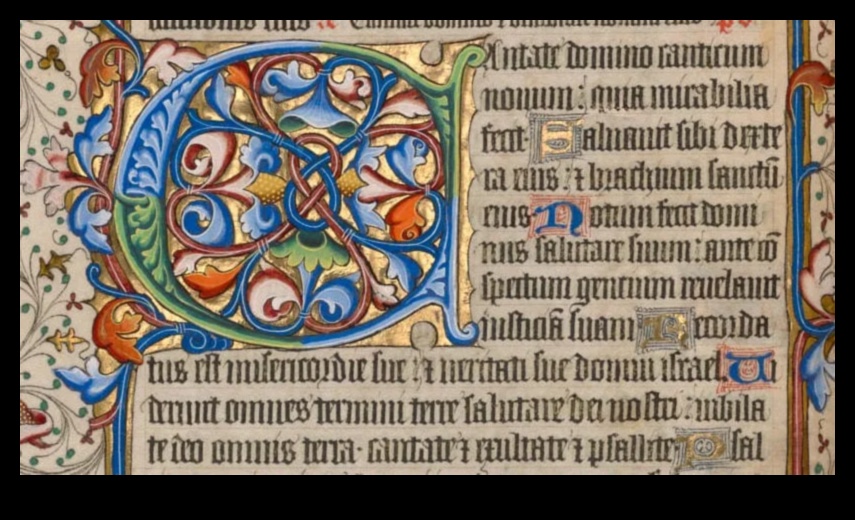 Cantate domino canticum
nouum: quia mirabilia
fecit. Saluauit sibi dexte
ra eius: et brachium sanctū
eius Notum fecit domi
nus salutare suum: ante cō
spectum gentium reuelauit
iusticiā suam Recorda
tus est misericordie sue: et ueritati sue domui israel. Ui
derunt omnes termini terre salutare dei nostri: iubila
te deo omnis terra. cantate et exultate et psallite Psal